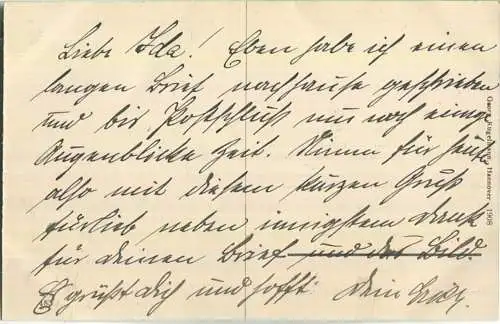 Liebe Ida! Eben habe ich einen
langen Brief nachhause geschrieben
und bis Postschluss nur noch einige
Augenblicke Zeit. Nimm für heute
also mit diesem kurzen Gruß
fürlieb neben innigstem Dank
für deinen Brief und das Bild.
Es grüßt Dich und hofft Dein
Hannover 1908